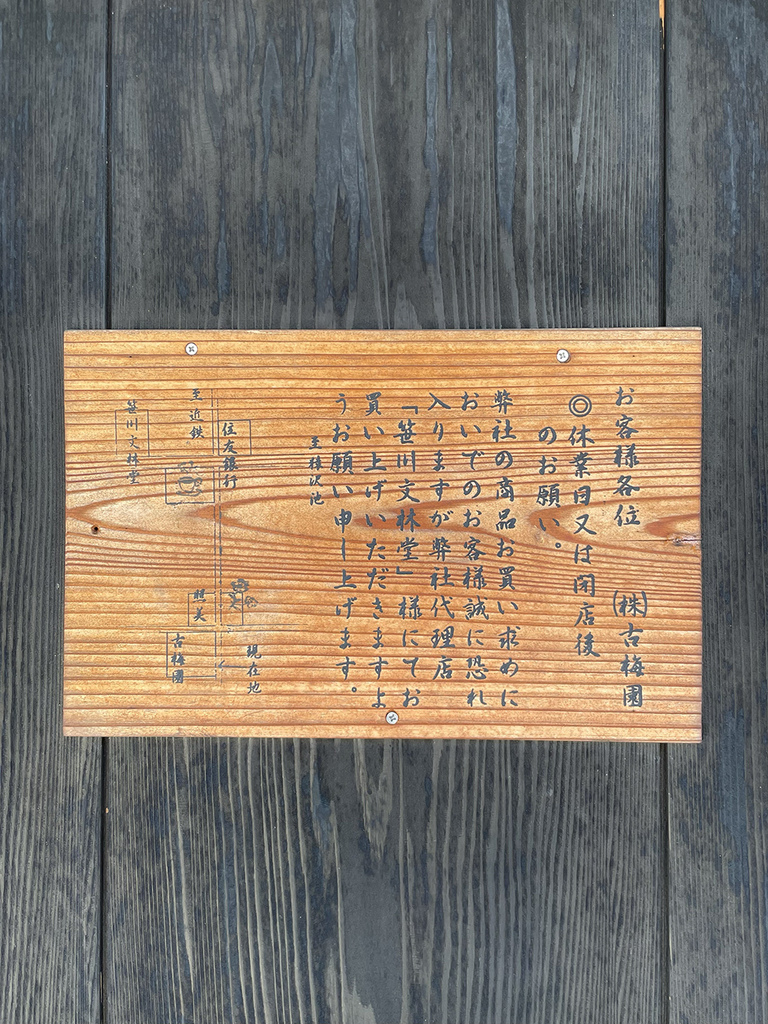 お客様各位　㈱古梅園
◎休業日又は閉店後
のお願い。
弊社の商品お買い求めに
おいでのお客様誠に恐れ
入りますが弊社代理店
「笹川文林堂」様にてお
買い上げいただきますよ
うお願い申し上げます。
至猿沢池
現在地
住友銀行
至近鉄
照美
古梅園
笹川文林堂